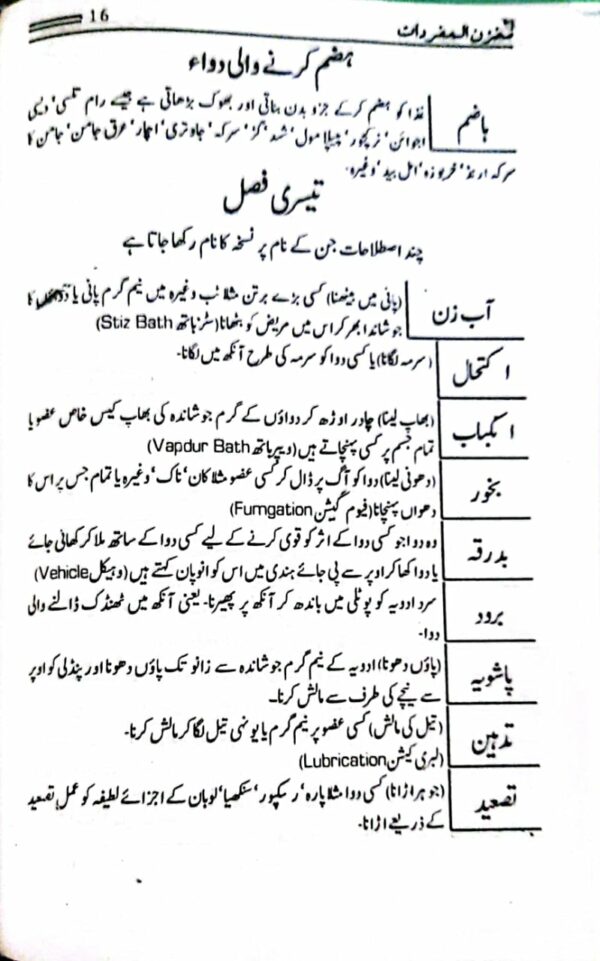 مخزن المفردات 16
ہضم کرنے والی دواء
ہاضم
غذا کو ہضم کرکے جزو بدن بناتی اور بھوک بڑھاتی ہے جیسے رام تلسی' دیسی
اجوائن' نرکچور' پیپلا مول' شہد' گز' سرکہ' جاوتری' اچار' عرق جامن' جامن کا
سرکہ' ارنڈ' خربوزہ' امل بید' وغیرہ۔
تیسری فصل
چند اصطلاحات جن کے نام پر نسخہ کا نام رکھا جاتا ہے
آب زن
(پانی میں بیٹھنا) کسی بڑے برتن مثلا ٹب وغیرہ میں نیم گرم پانی یا دواؤں کا
جوشاندا بھر کر اس میں مریض کو بٹھانا (سٹز باتھ Stiz Bath)
اکتحال
(سرمہ لگانا) یا کسی دوا کو سرمہ کی طرح آنکھ میں لگانا۔
انکباب
(بھاپ لینا) چادر اوڑھ کر دواؤں کے گرم جوشاندہ کی بھاپ کیس خاص عضو یا
تمام جسم پر کسی پہنچاتے ہیں (ویپر باتھ Vapdur Bath)
بخور
(دھونی لینا) دوا کو آگ پر ڈال کر کسی عضو مثلا کان' ناک' وغیرہ یا تمام جس پر اس کا
دھواں پہنچانا (فیوم گیشن Fumgation)
بدرقہ
وہ دوا جو کسی دوا کے اثر کو قوی کرنے کے لیے کسی دوا کے ساتھ ملا کر کھائی جائے
یا دوا کھا کر اوپر سے پی جائے ہندی میں اس کو انوپان کہتے ہیں (وہیکل Vehicle)
برود
سرد ادویہ کو پوٹلی میں باندھ کر آنکھ پر پھیرنا۔ یعنی آنکھ میں ٹھنڈک ڈالنے والی
دوا۔
پاشویہ
(پاؤں دھونا) ادویہ کے نیم گرم جوشاندہ سے زانو تک پاؤں دھونا اور پنڈلی کو اوپر
سے نیچے کی طرف سے مالش کرنا۔
تدہین
(تیل کی مالش) کسی عضو پر نیم گرم یا یونہی تیل لگا کر مالش کرنا۔
(لبری کیشن Lubrication)
تصعید
(جوہر اڑانا) کسی دوا مثلا پارہ' رسکپور' سنکھیا' لوبان کے اجزائے لطیفہ کو عمل تصعید
کے ذریعے اڑانا۔